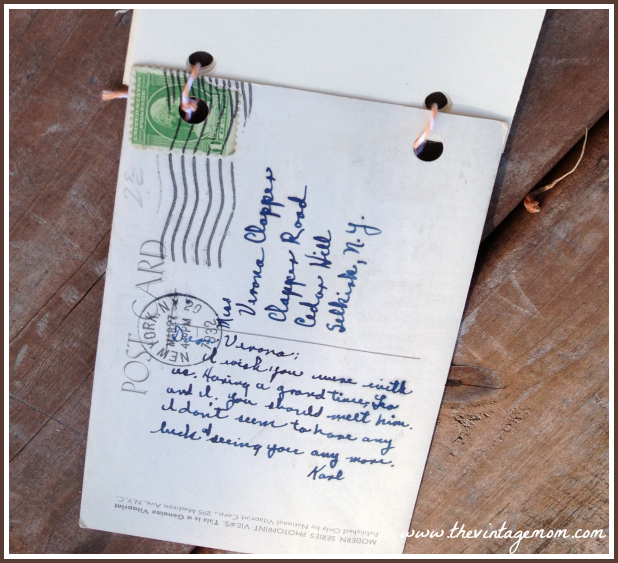 POST CARD
NEW YORK, N
20
1932
Miss
Verona Clapper
Clapper Road
Cedar Hill
Selkirk, N.Y.
Verona:
I wish you were with
us. Having a grand time, Leo
and I. you should meet him.
I dont seem to have any
luck seeing you any more.
Karl
MODERN SERIES PHOTOPRINT VIEWS. This is a Genuine Vitaprint
Published Only by National Vitaprint Corp., 295 Madison Ave. N.Y.C.
www.thevintagemom.com